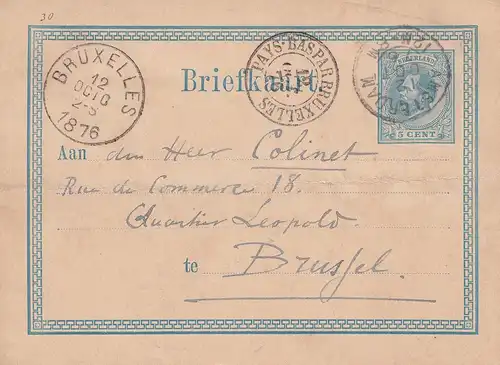 30
BRUXELLES
12
OCTO
2-S
1876
PAYS-BAS PAR BRUXELLES
12
AMSTERDAM
NEDERLAND
5 CENT
Briefkaart.
Aan den Heer Colinet
Rue de Commerce 18.
Quartier Leopold.
te Brussel.